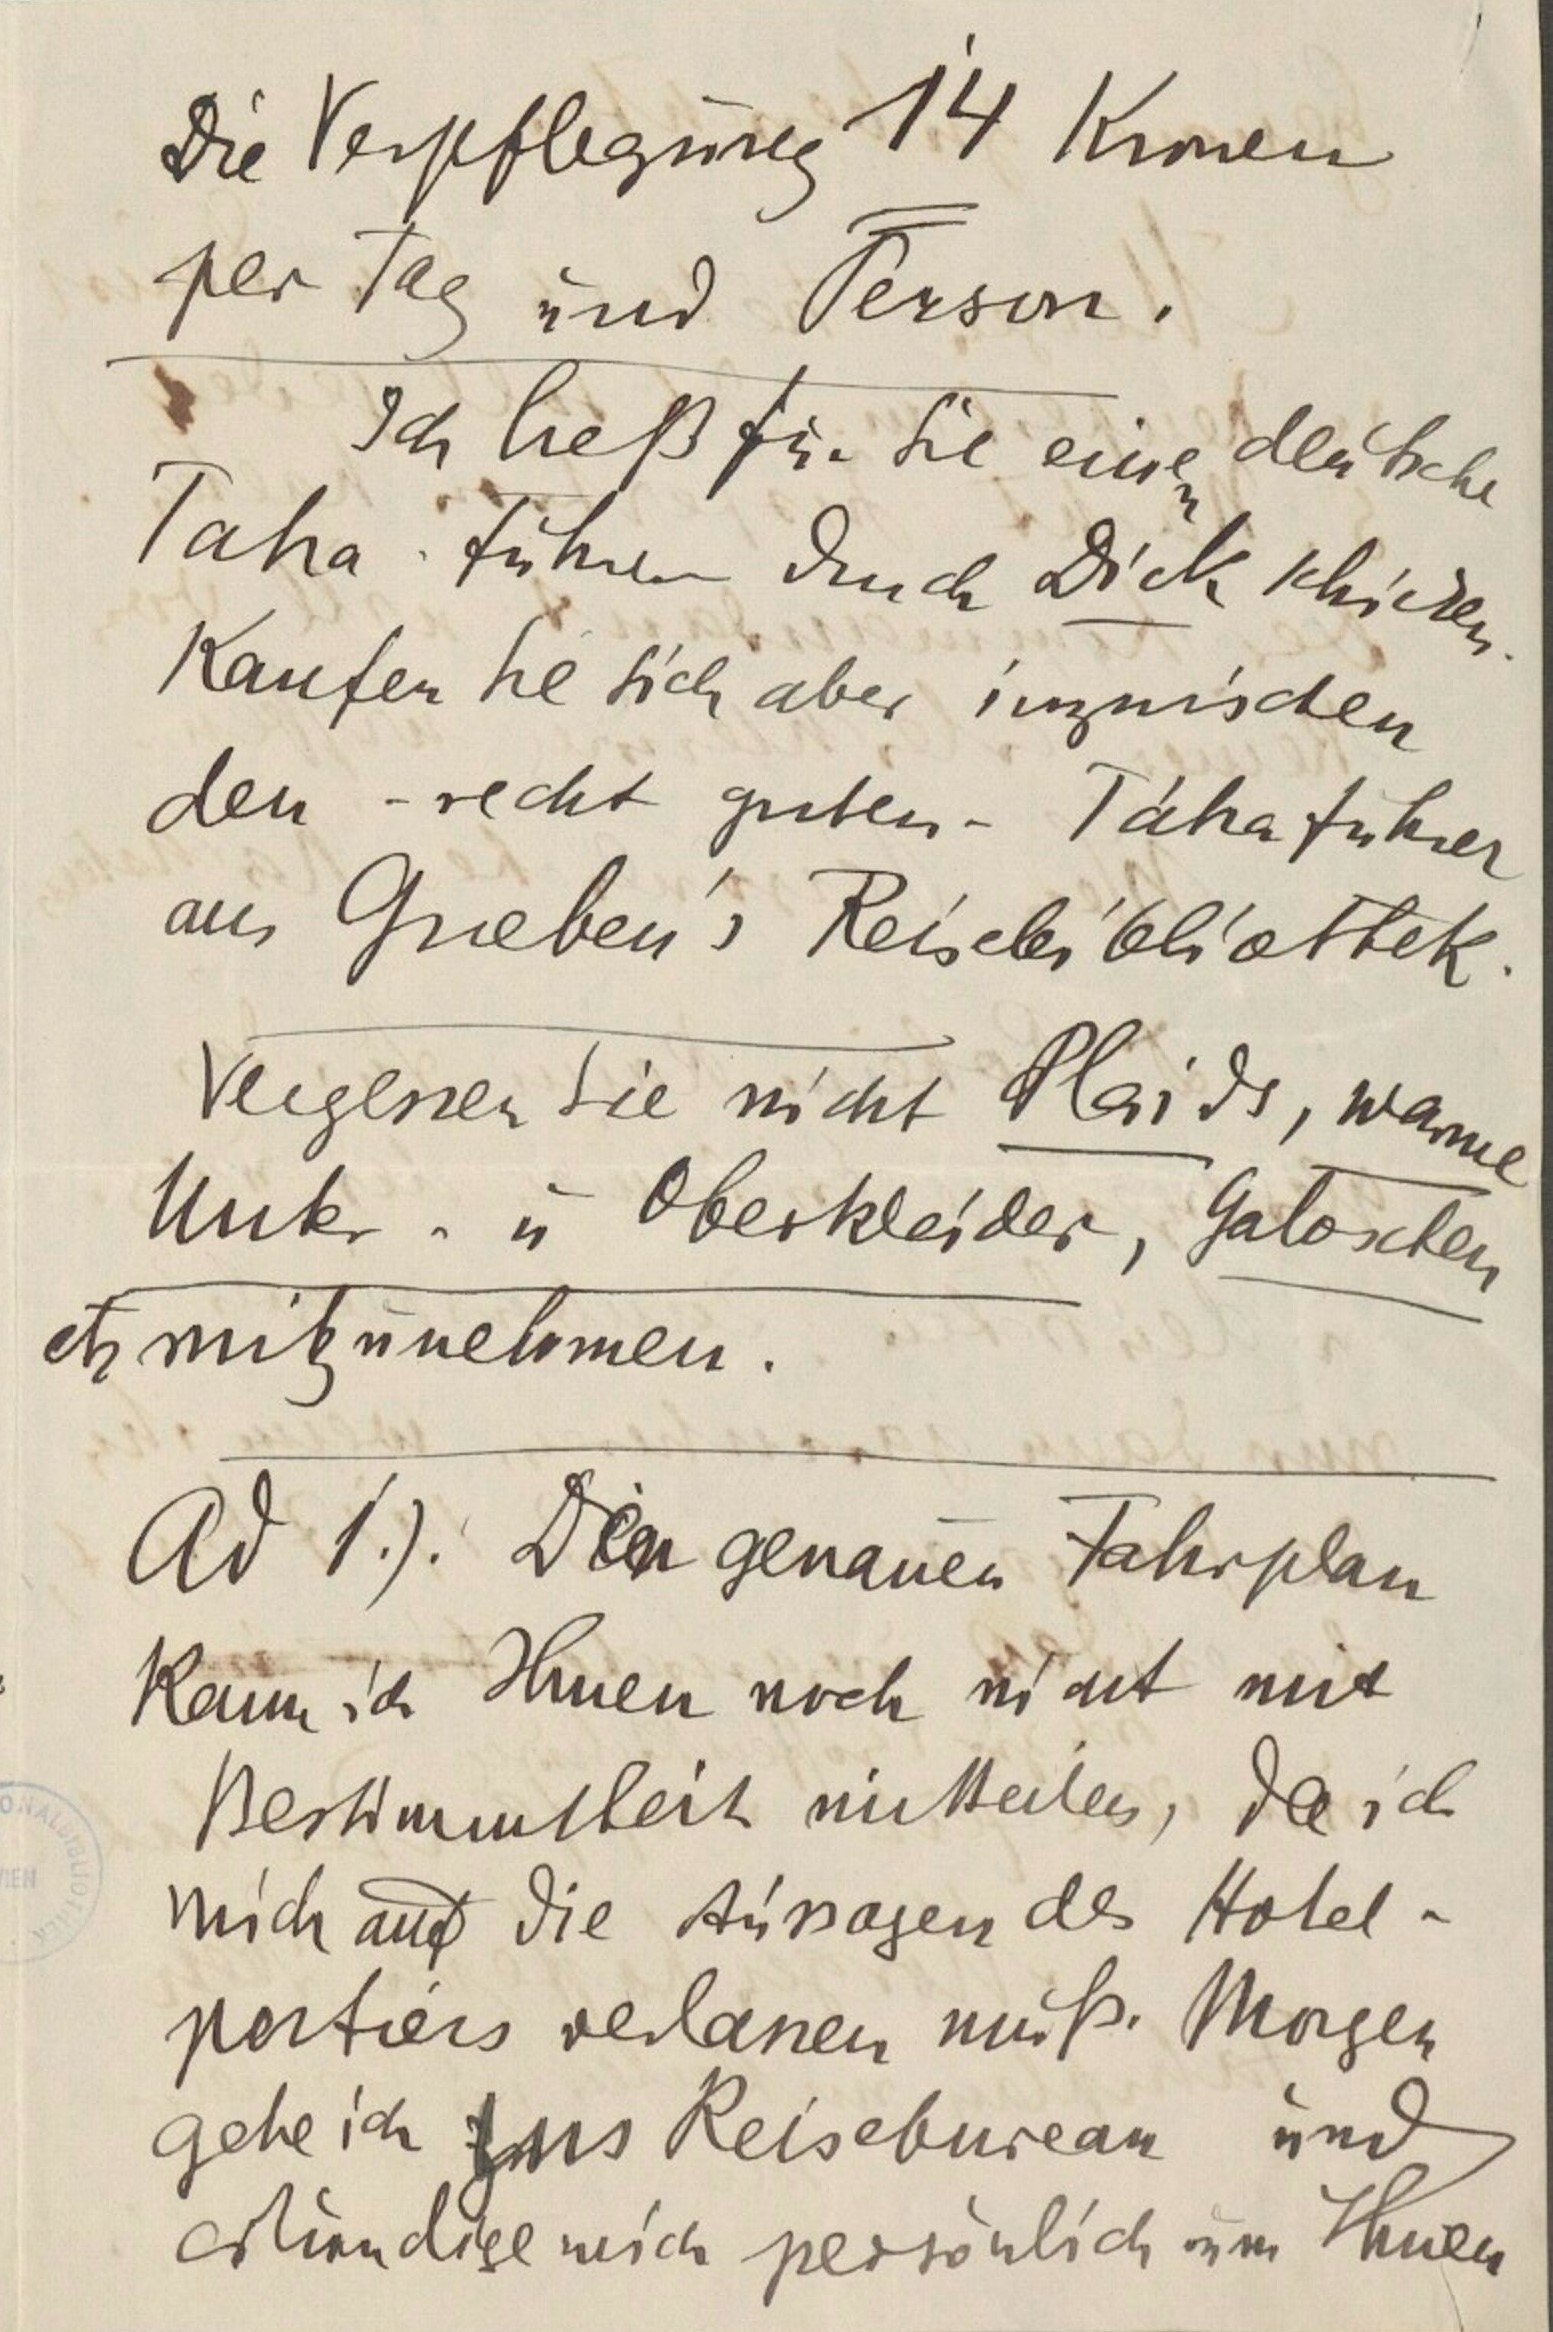 Die Verpflegung 14 Kronen
per Tag und Person.
Ich ließ für Sie einen deutsche
Tatra-führer durch Dick schicken.
Kaufen Sie sich aber inzwischen
den - recht guten - Tátraführer
aus Grieben's Reisebibliothek.
Vergessen Sie nicht Plaids, warme
Unter- u Oberkleider, Galoschen
etz mitzunehmen.
Ad 1.). Den genauen Fahrplan
Kann ich Ihnen noch nicht mit
Bestimmtheit mitteilen, da ich
mich auf die Aussagen des Hotel-
portiers verlassen muß. Morgen
gehe ich ins Reisebureau und
erkundige mich persönlich um Ihnen